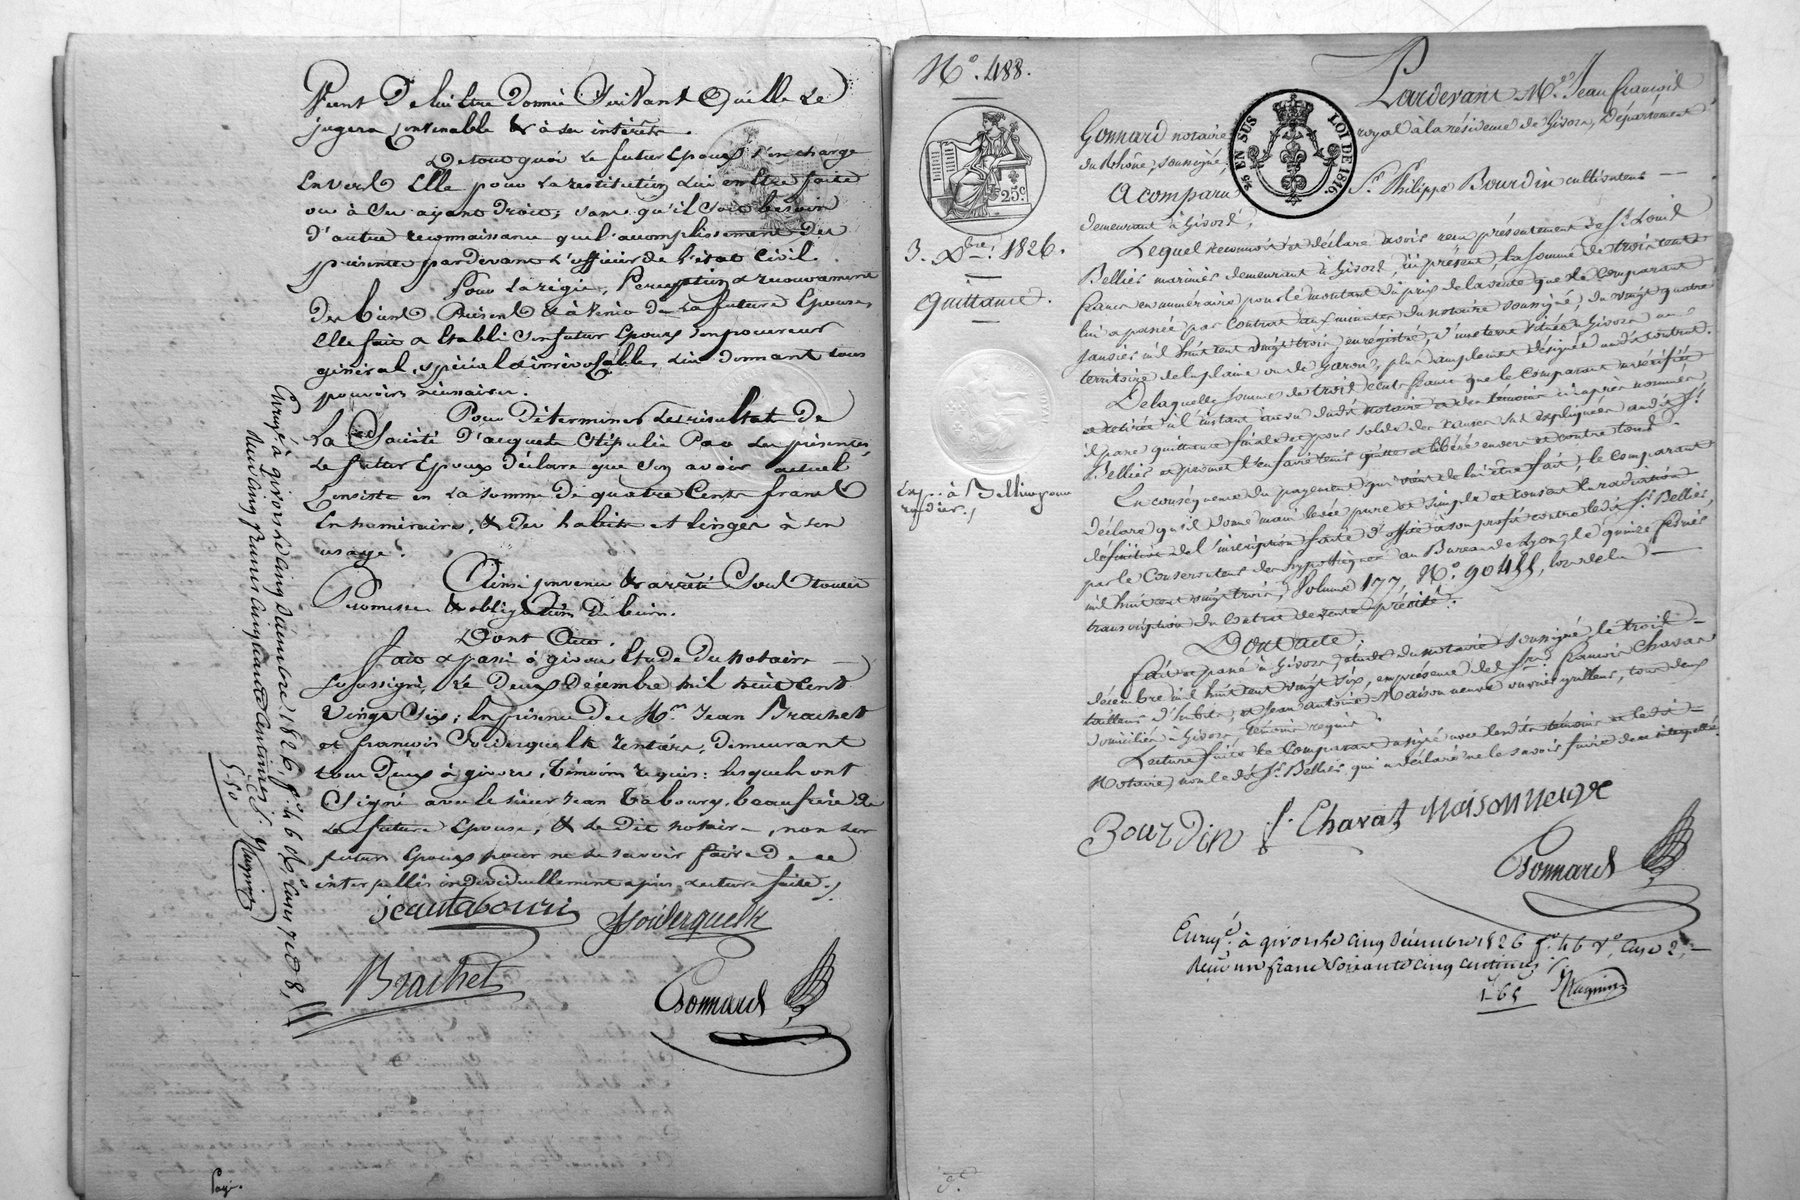 Vient D'elui être donnée suivant qu'elle le
jugera convenable & à ses intérêts.
De tout quoi le futur Epoux s'en charge
Envers Elle pour la restitution lui en être faite
ou à ses ayant Droits, sans qu'il soit besoin
D'autre reconnaissance que l'accomplissement des
présentes pardevant l'officier de l'Etat Civil.
Pour la régie, Perception & recouvrement
Des biens Présents & à venir De la future Epouse,
Elle fait & Etabli son futur Epoux son procureur
général, spécial & irrévocable, lui donnant tous
pouvoirs nécessaires.
Pour Déterminer les résultats De
la Société D'acquets Stipulée Par les présentes
Le futur Epoux Déclare que son avoir actuel
Consiste en la somme De quatre Cents francs
En numéraire, & des habits et linges à son
usage.
Ainsi convenu & arrêté Sous toutes
Promesses & obligations De biens.
Dont Acte.
fait & passé à givors Etude Du notaire
soussigné, Le Deux Décembre mil huit cent
Vingt Six; En présence De Mrs Jean Brachet
et françois Soiderquelk rentiers, Demeurant
tous Deux à givors, témoins requis: lesquels ont
Signé avec le sieur Jean Taboury beaufrère de
La future Epouse, & Le Dit notaire, non les
futurs Epoux pour ne le savoir faire De ce
interpellés individuellement après Lecture faite./
jean tabouri
Soiderquelk
Brachet
Gonnard
Enreg.é à givors le cinq Décembre 1826, f.o 46 Ro, cases 7 et 8,
Reçu cinq francs cinquante centimes
5-50
N.o 488.
25c.
3. Xbre. 1826.
Quittance.
Exp.. à Bellier pour
radier./
25 EN SUS LOI DE 1816.
Pardevant Me. Jean François
Gonnard notaire royal à la résidence de Givors, Département
du Rhône, soussigné,
A comparu Sr. Philippe Bourdin cultivateur
demeurant à Givors,
Lequel reconnoit et déclare avoir reçu présentement de Sr. Louis
Bellier marinier demeurant à Givors, ici présent, la somme de trois cents
francs en numéraire pour le montant du prix de la vente que le Comparant
lui a passée par Contrat aux minutes du notaire soussigné, du vingt quatre
janvier mil huit cent vingt trois, enrégistré, d'une terre située à Givors au
territoire de la plaine ou de Garon, plus amplement désignée audit contrat.
De laquelle somme de trois cents francs que le Comparant a vérifiée
et retirée à l'instant au vu dudit notaire et des témoins ci-après nommés
il passe quittance finale et pour solde des causes sus expliquées audit Sr.
Bellier et promet l'en faire tenir quitte et libéré envers et contre tous.
En conséquence du payement qui vient de lui être fait, le comparant
déclare qu'il donne main levée pure et simple et consent la radiation
définitive de l'inscription faite d'office à son profit contre ledit Sr. Bellier,
par le Conservateur des hypothèques au Bureau de Lyon, le quinze février
mil huit cent vingt trois, Volume 177, No. 90455, lors de la
transcription du Contrat de vente précité.
Dont acte;
Fait et passé à Givors, étude du notaire soussigné, le trois
décembre mil huit cent vingt six, en présence des Srs. François Chavas
tailleur d'habits, et Jean Antoine Maison neuve ouvrier, tous deux
domiciliés à Givors témoins requis;
Lecture faite le Comparant a signé avec lesdits témoins et ledit
Notaire, non ledit Sr. Bellier qui a déclaré ne le savoir faire de ce interpellé
Bourdin f. Chavas Maisonneuve
Gonnard
Enreg.é à givors le cinq Décembre 1826 f.o 46 Vo, case 2,
Reçu un franc soixante cinq centimes
1-65